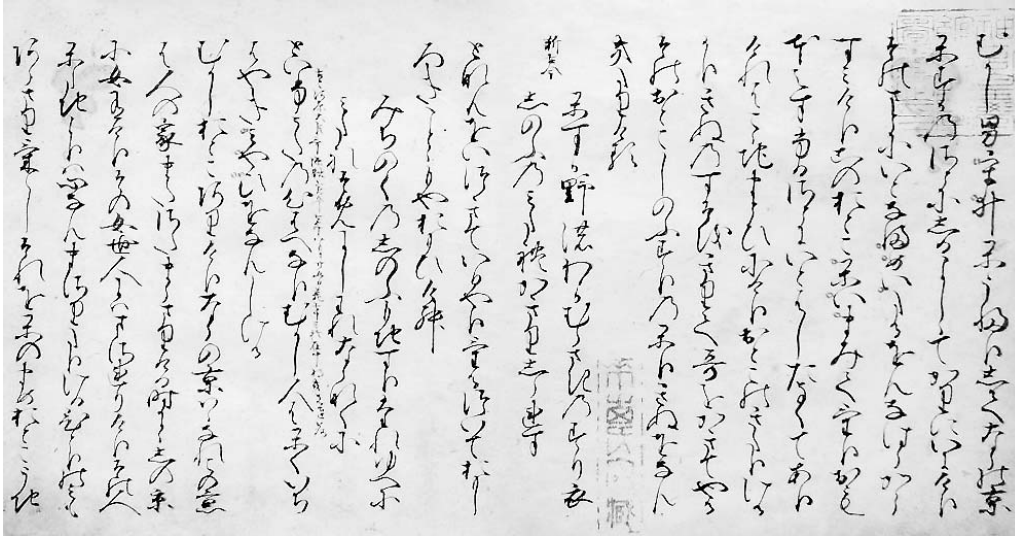 むかし男うゐかうふりしてならの京
かすかのさとにしるよししてかりにいにけり
そのさとにいとなまめいたるをんなはらから
すみけりこのおとこかいまみてけりおもほ
えすふるさとにいとはしたなくてあり
けれは心地まとひにけりおとこのきたりける
かりきぬのすそをきりて哥をかきてやる
そのおとこしのふすりのかりきぬをなん
きたりける
新古今 かすか野のわかむらさきのすり衣
しのふのみたれかきりしられす
となんをいつきていひやりけるついておもし
ろきことともやおもひけん
みちのくのしのふもちすりたれゆへに
みたれそめにしわれならなくに
といふうたの心はへなりむかし人はかくいち
はやきみやひをなんしける
むかしおとこありけりならの京ははなれこの京
は人の家またさたまらさりける時にしの京
に女ありけりその女世人にはまされりけりその人
かたちよりは心なんまさりたりけるひとりのみも
あらさりけらしそれをかのまめおとこうち